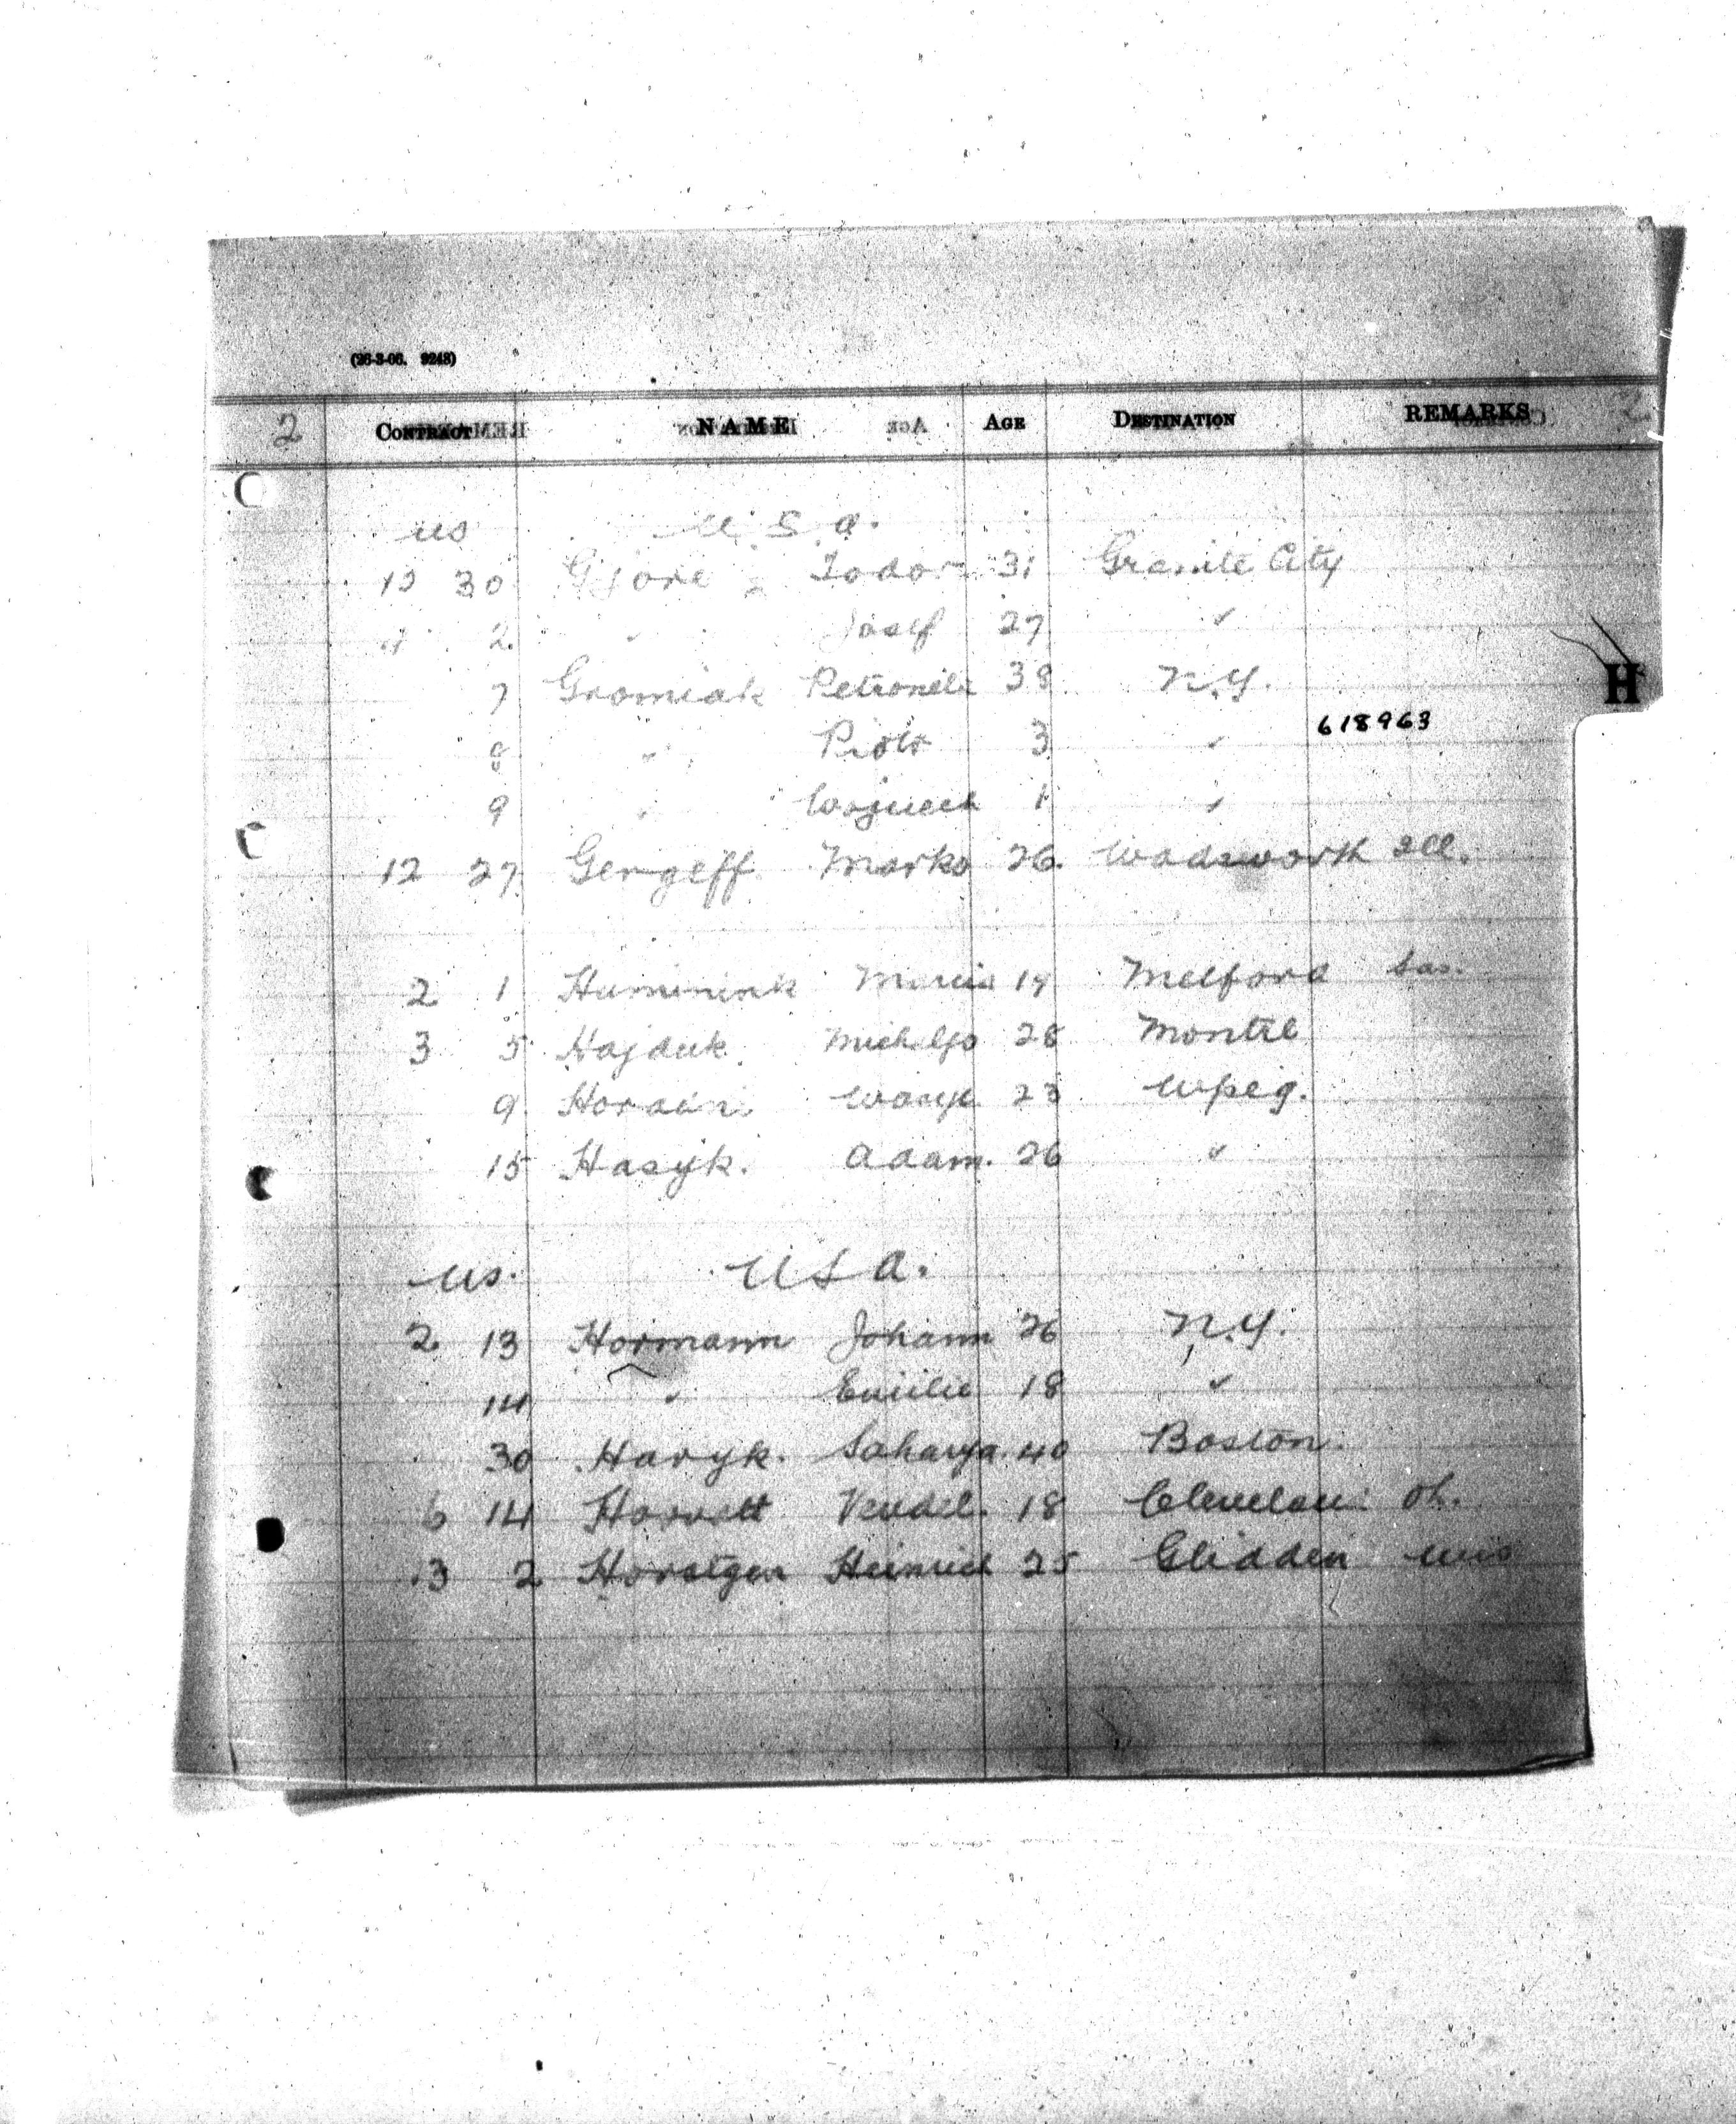 (26-3-06. 9248)
2 CONTRACT NAME AGE DESTINATION REMARKS
us U.S.A.
12 30 Gjore Todor 31 Granite City
2 " Josef 27 "
7 Gromiak Petronela 38 N.Y.
H
618963
8 " Piotr 3 "
9 " Wojciech 1 "
12 27 Gergeff Marko 26 Wadsworth Ill.
2 1 Maria 19 Melford Sas.
3 5 Hajduk Michaljo 28 Montrl
9 Wasyl 23 Wpeg.
15 Hasyk. Adam. 26 "
us. USA.
2 13 Hormann Johann 26 N.Y.
14 " Emilie 18 "
30 Haryk. Saharya. 40 Boston.
6 14 Horvatt Vendel. 18 Clevelan Oh.
3 2 Horstgen Heinrich 25 Glidden Wis